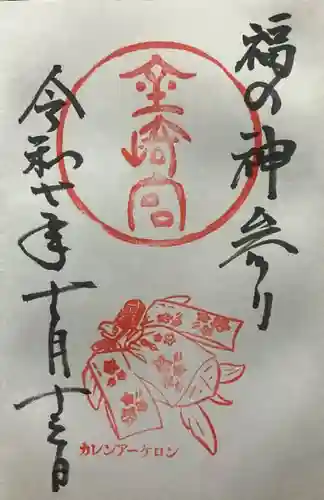 福の神参り
金崎宮
令和七年
十一月十三日
カレンアーケロン